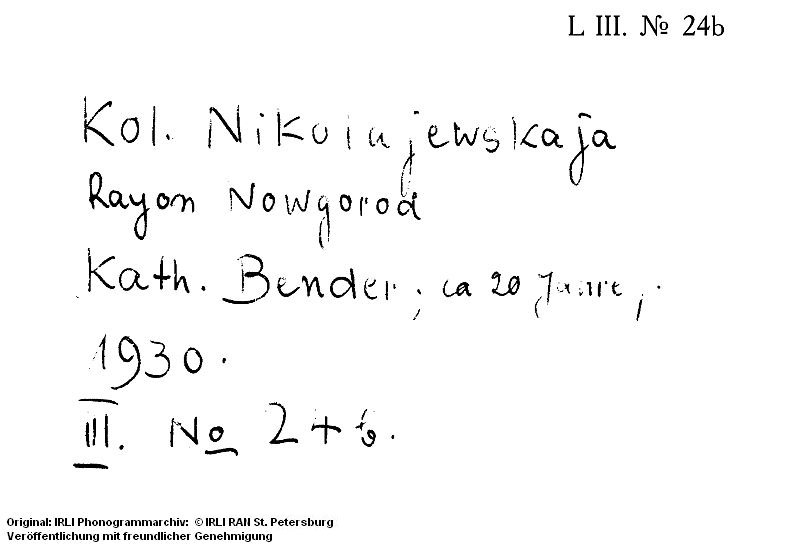 L III. № 24b
Kol. Nikolajewskaja
Rayon Nowgorod
Kath. Bender; ca 20 Jahre;
1930.
III. No 24b.
Original: IRLI Phonogrammarchiv: © IRLI RAN St. Petersburg
Veröffentlichung mit freundlicher Genehmigung